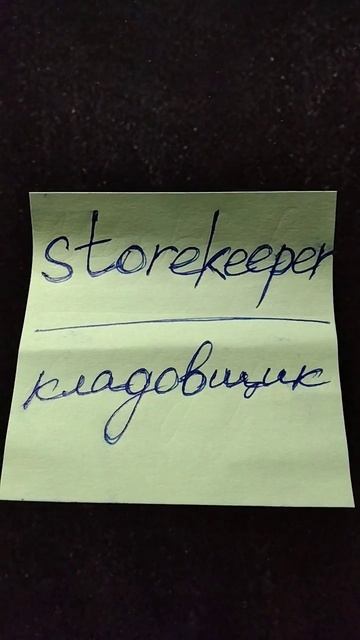 storekeeper
кладовщик